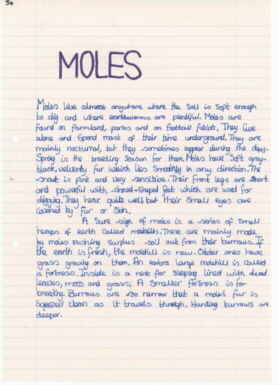 MOLES
Moles live almost anywhere where the soil is soft enough
to dig and where earthworms are plentiful. Moles are
found on farmland, parks and on football fields. They live
alone and spend most of their time underground. They are
mainly nocturnal, but they sometimes appear during the day.
Spring is the breeding season for them. Moles have soft grey-
black, velvety fur which lies smoothly in any direction. The
snout is pink and very sensitive. Their front legs are short
and powerful with shovel-shaped feet which are used for
digging. They hear quite well but their small eyes are
covered by fur or skin.
A sure sign of moles is a series of small
heaps of earth called molehills. These are mainly made
by moles pushing surplus soil out from their burrows. If
the earth is fresh, the molehill is new. Older ones have
grass growing on them. An extra large molehill is called
a fortress. Inside is a nest for sleeping lined with dead
leaves, moss and grass. A smaller fortress is for
breeding. Burrows are so narrow that a moles fur is
clean as it travels through. Hunting burrows are
deeper.